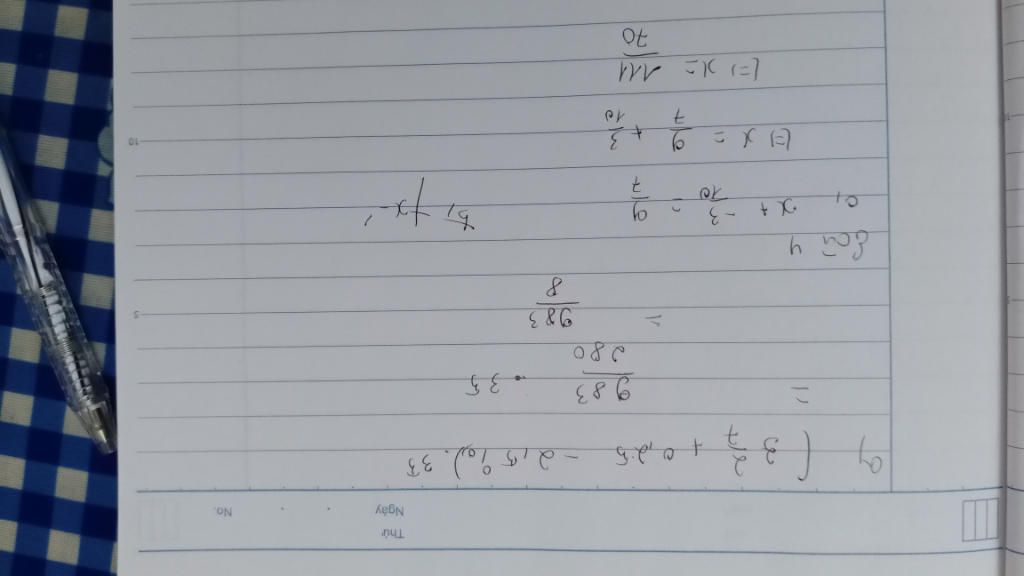 Thứ
Ngày No.
g) (3 2/7 + 0,25 - 2,5%).35
= 983/280 . 35
= 983/8
5
Bài 4
a, x + -3/10 = 9/7 b, x -
(=) x = 9/7 + 3/10
10
(=) x = 111/70